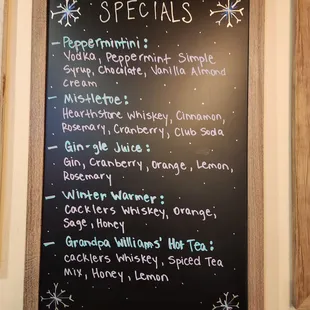 SPECIALS
- Peppermintini:
Vodka, Peppermint Simple
Syrup, Chocolate, Vanilla Almond
cream
- Mistletoe:
Hearthstone Whiskey, Cinnamon,
Rosemary, Cranberry, Club Soda
- Gin-gle Juice:
Gin, Cranberry, Orange, Lemon,
Rosemary
- Winter Warmer:
Cacklers Whiskey, Orange,
Sage, Honey
- Grandpa Williams' Hot Tea:
cacklers Whiskey, Spiced Tea
Mix, Honey, Lemon